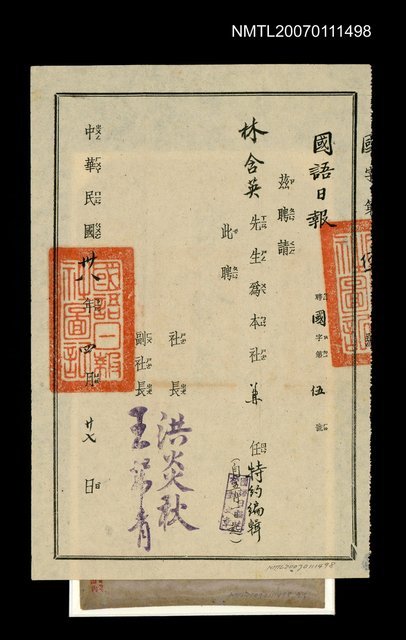 NMTL20070111498
國語日報
聘國字第伍號
茲聘請
林含英先生為本社兼任特約編輯
此聘
社長 洪炎秋
副社長
中華民國卅八年四月廿八日
國語日報社圖記
NMTL20070111498